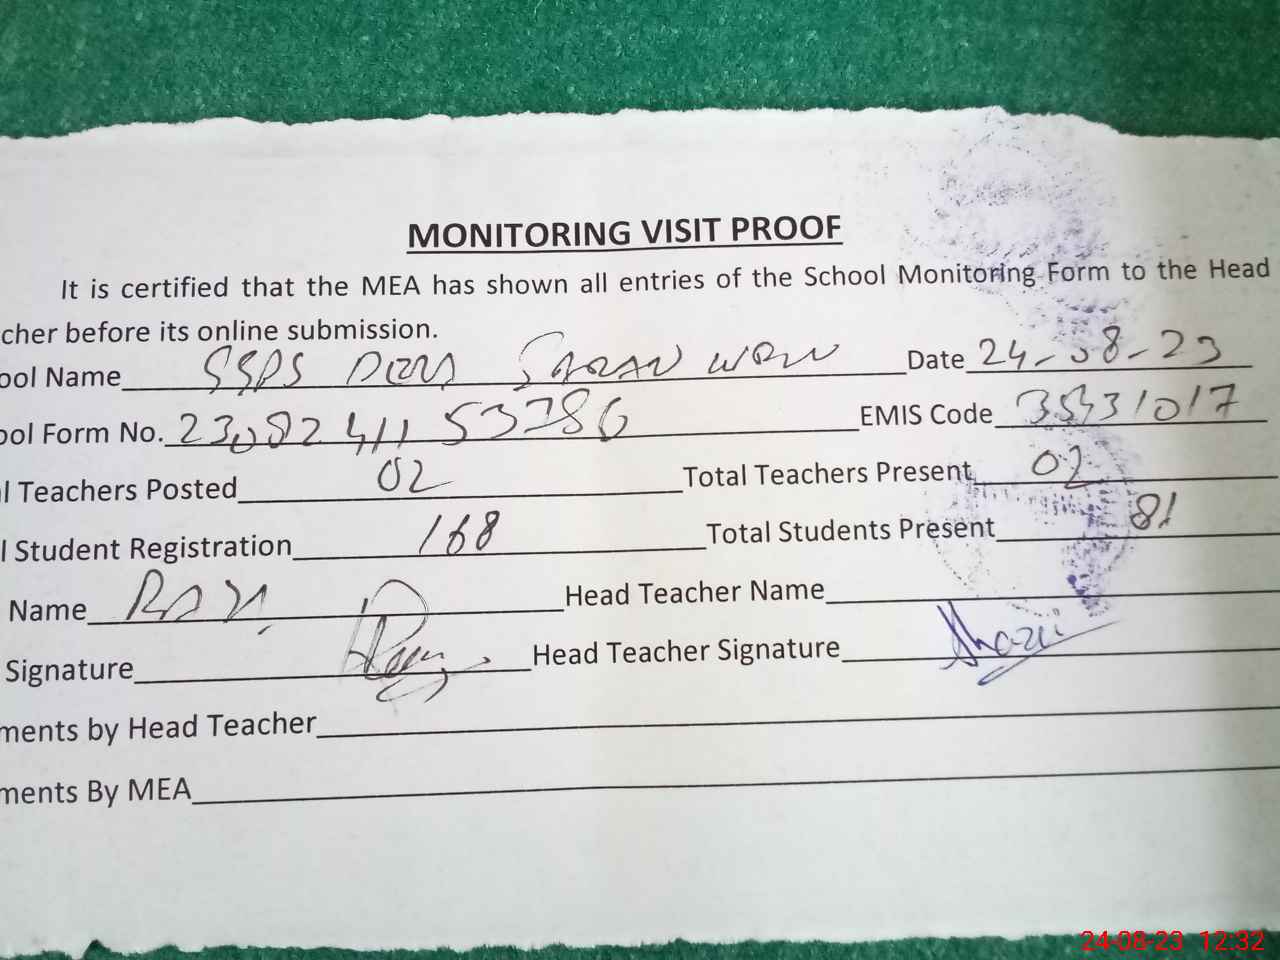 MONITORING VISIT PROOF
It is certified that the MEA has shown all entries of the School Monitoring Form to the Head
cher before its online submission.
ool Name SSPS DERA Date 24-08-23
ool Form No. EMIS Code
l Teachers Posted 02 Total Teachers Present 02
l Student Registration 168 Total Students Present 81
Name Head Teacher Name
Signature Head Teacher Signature
ments by Head Teacher
ments By MEA
24-08-23 12:32